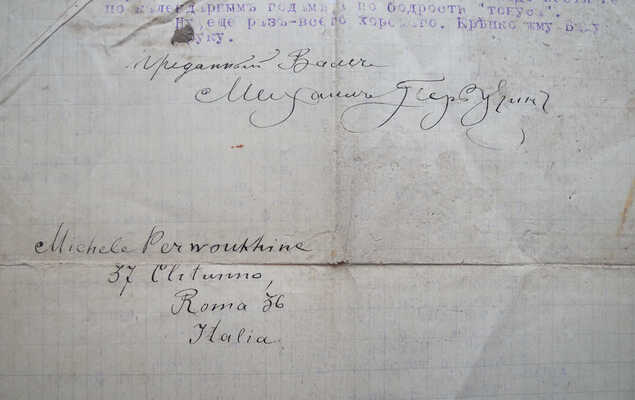 по календарнымъ годамъ а по бодрости "тонуса".
Ну еще разъ-всего хорошаго. Крѣпко жму Вашу
руку.
преданный Вамъ
Михаилъ Первухинъ
Michele Perwoukhine
37 Clitunno,
Roma 36
Italia